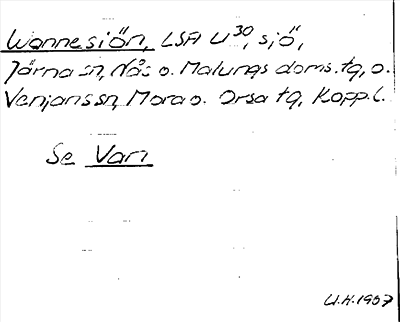 Wannesiön, LSA U³⁰, sjö,
Järna sn, Nås o. Malungs doms. tg, o.
Venjans sn, Mora o. Orsa tg, Kopp. l.
Se Van
U.H. 1957